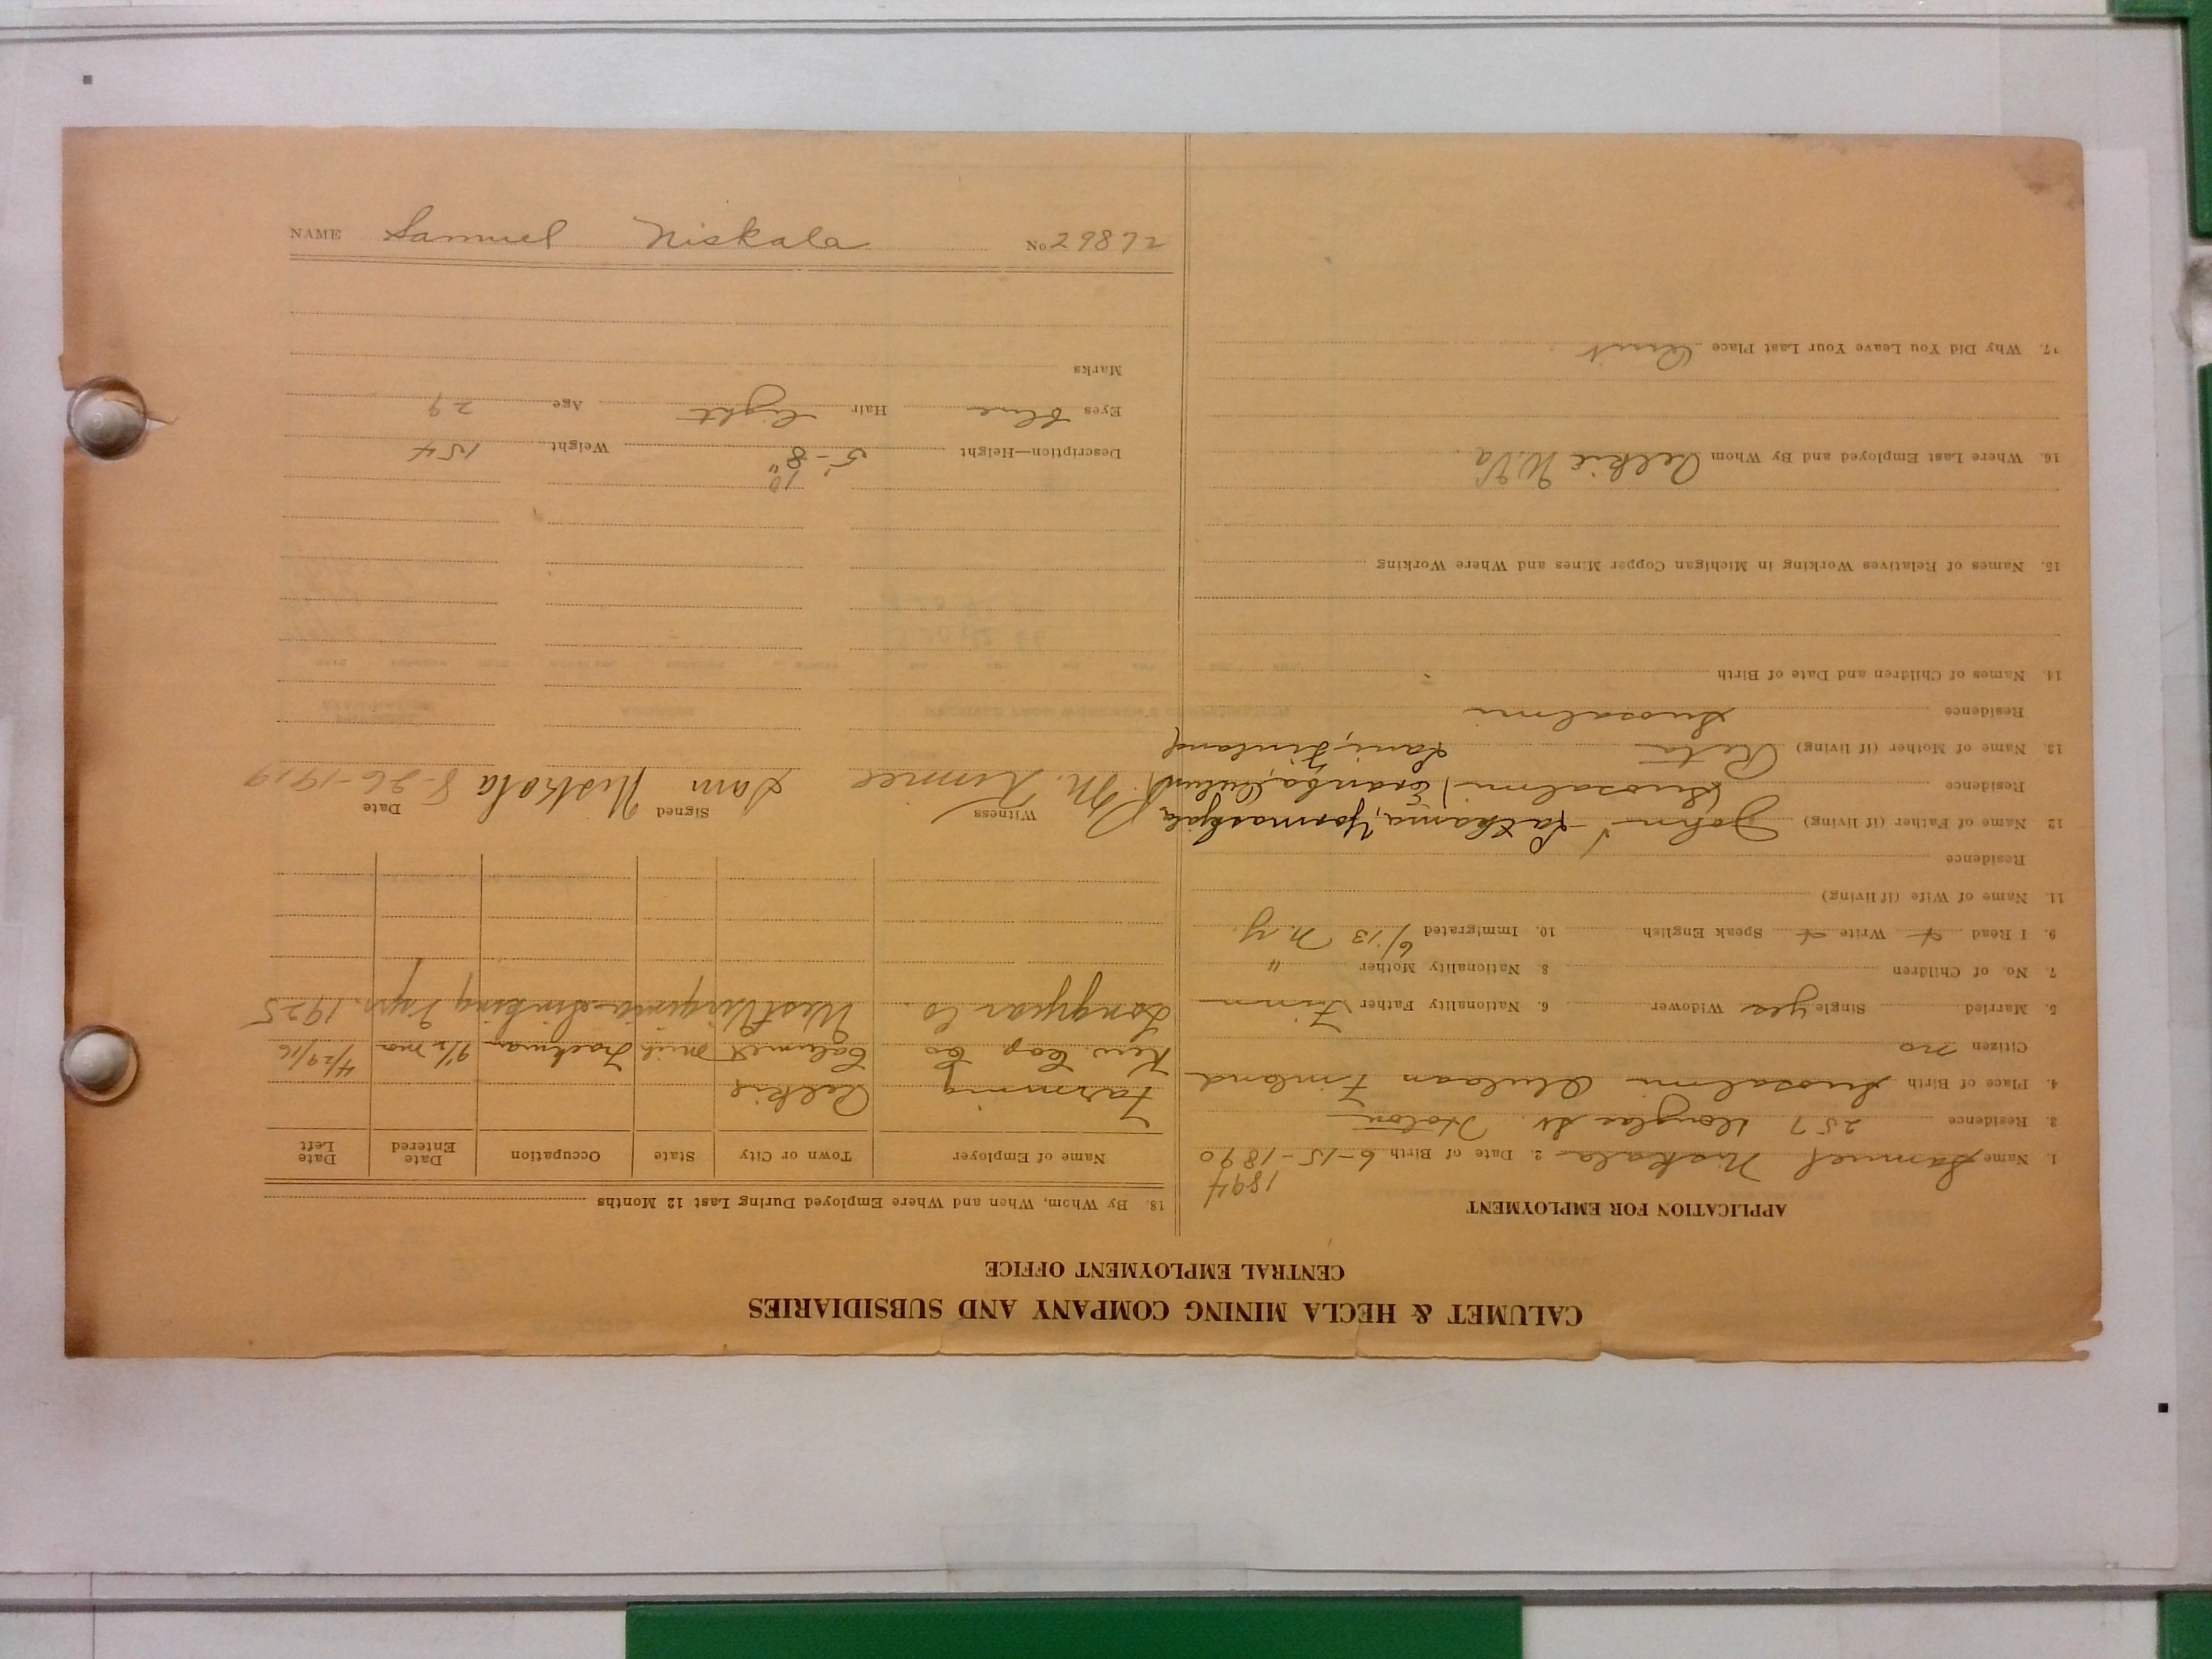 CALUMET & HECLA MINING COMPANY AND SUBSIDIARIES
CENTRAL EMPLOYMENT OFFICE
APPLICATION FOR EMPLOYMENT
1894
1. Name Samuel Niskala 2. Date of Birth 6-15-1890
3. Residence 257 Douglas St.
4. Place of Birth Suosalmi Oulaan Finland
Citizen no
5. Married Single yes Widower 6. Nationality Father Finn
7. No. of Children 8 Nationality Mother "
9. I Read Write Speak English 10. Immigrated 6/13 N.Y.
11. Name of Wife (if living)
Residence
12 Name of Father (if living) John
Residence (Suosalmi)
13 Name of Mother (if living) Finland
Residence Suosalmi
14. Names of Children and Date of Birth
15. Names of Relatives Working in Michigan Copper Mines and Where Working
16. Where Last Employed and By Whom Pelkie W.Va
17. Why Did You Leave Your Last Place Quit
18. By Whom, When and Where Employed During Last 12 Months
Name of Employer Town or City State Occupation Date Entered Date Left
Farming Pelkie
Kew. Cop. Co Calumet Mich Trackman 9 1/2 mo 4/29/16
Longyear Co. West Virginia Sinking 1925
Witness Signed Sam Niskala Date 8-26-1919
10"
Description—Height 5'-8 Weight 154
Eyes blue Hair light Age 29
Marks
NAME Samuel Niskala No. 29872